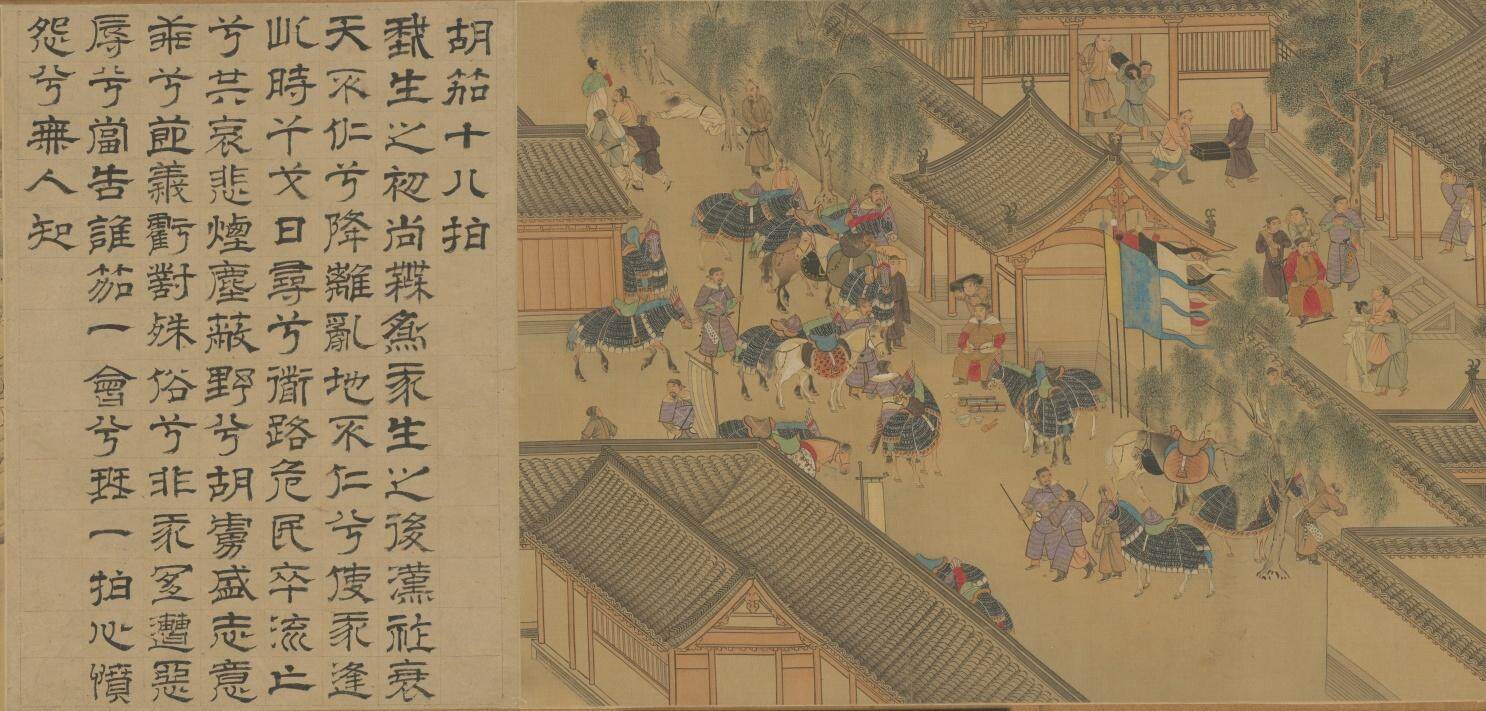 胡笳十八拍
我生之初尚無為我生之後漢祚衰
天不仁兮降離亂地不仁兮使我逢
此時干戈日尋兮道路危民卒流亡
兮共哀悲煙塵蔽野兮胡虜盛志意
乖兮節義虧對殊俗兮非我宜遭惡
辱兮當告誰笳一會兮琴一拍心憤
怨兮無人知